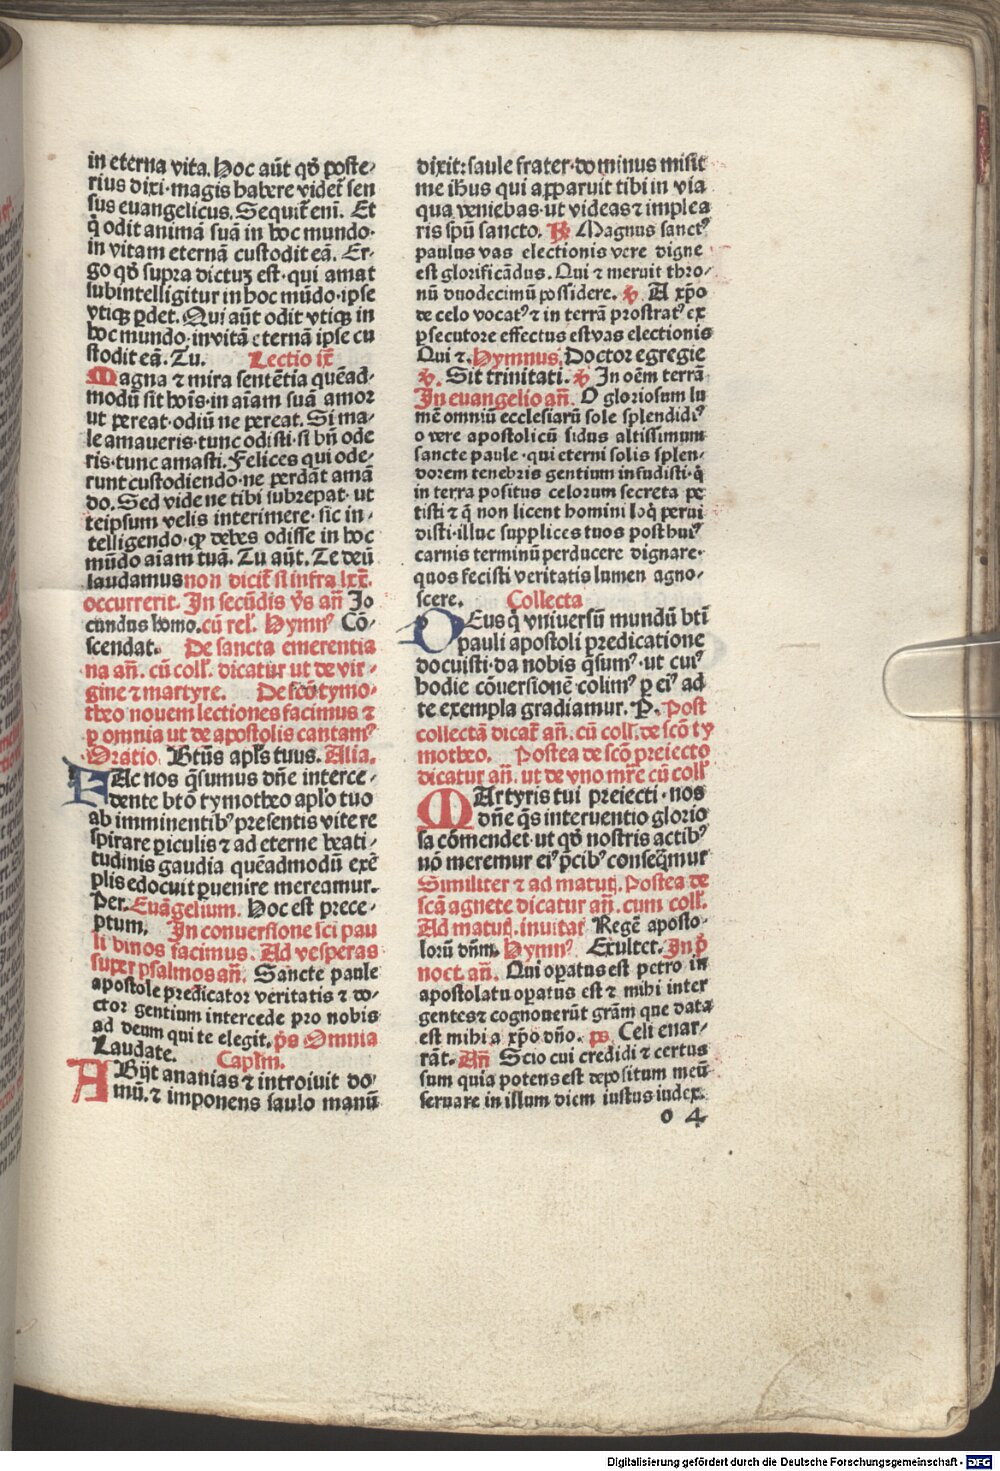 in eterna vita. Hoc aūt qđ poste⸗
rius dixi·magis habere videt̄ sen
sus euangelicus. Sequit̄ enī. Et
q̇ odit animā suā in hoc mundo·
in vitam eternā custodit eā. Er⸗
go qđ supra dictuȝ est·qui amat
subintelligitur in hoc mūdo·ipse
vtiqȝ ꝑdet. Qui aūt odit vtiqȝ in
hoc mundo·invitā eternā ipse cu
stodit eā. Tu. Lectio ix̄
Magna ⁊ mira sentētia quēad⸗
modū sit hoīs·in aīam suā amor
ut pereat·odiū ne pereat. Si ma⸗
le amaueris·tunc odisti·si bn̄ ode
ris·tunc amasti. Felices qui ode⸗
runt custodiendo·ne perdāt amā
do. Sed vide ne tibi subrepat· ut
teipsum velis interimere· sic in⸗
telligendo· ꝙ debes odisse in hoc
mūdo aīam tuā. Tu aūt. Te deū
laudamus non dicit̄ si infra lxx̄.
occurrerit. In secūdis v̄s an̄ Jo
cundus homo. cū rel'. Hymnꝰ Cō⸗
scendat. De sancta emerentia
na an̄. cū coll'. dicatur ut de vir⸗
gine ⁊ martyre. De scō tymo⸗
theo nouem lectiones facimus ⁊
ꝑ omnia ut de apostolis cantamꝰ
Oratio Btūs apl's tuus. Alia.
FAc nos q̄sumus dn̄e interce⸗
dente btō tymotheo apl'o tuo
ab imminentibꝰ presentis vite re
spirare ꝑiculis ⁊ ad eterne beati⸗
tudinis gaudia quēadmodū exē
plis edocuit ꝑuenire mereamur.
Per. Euāgelium. Hoc est prece⸗
ptum. In conuersione sci pau
li binos facimus. Ad vesperas
super psalmos an̄. Sancte paule
apostole predicator veritatis ⁊ do⸗
ctor gentium intercede pro nobis
ad deum qui te elegit. p̄s Omnia
Laudate. Capl'm.
ABijt ananias ⁊ introiuit do⸗
mū. ⁊ imponens saulo manū
dixit: saule frater·dominus misit
me ih̄us qui apparuit tibi in via
qua veniebas·ut videas ⁊ implea
ris spū sancto. ℟ Magnus sanctꝰ
paulus vas electionis vere digne
est glorificādus. Qui ⁊ meruit thro⸗
nū duodecimū possidere. ℣ A xp̄o
de celo vocatꝰ ⁊ in terrā prostratꝰ ex
ꝑsecutore effectus est vas electionis
Qui ⁊. Hymnus. Doctor egregie
℣. Sit trinitati. ℣ In oēm terrā
In euangelio an̄. O gloriosum lu
mē omniū ecclesiarū sole splendidiꝰ
o vere apostolicū sidus altissimum
sancte paule·qui eterni solis splen⸗
dorem tenebris gentium infudisti·q̇
in terra positus celorum secreta pe
tisti ⁊ q̄ non licent homini loq̇ perui
disti·illuc supplices tuos post huiꝰ
carnis terminū perducere dignare·
quos fecisti veritatis lumen agno⸗
scere. Collecta
DEus q̇ vniuersū mundū btī
pauli apostoli predicatione
docuisti·da nobis q̄sumꝰ·ut cuiꝰ
hodie cōuersionē·colimꝰ ꝑ eiꝰ ad
te exempla gradiamur. P. Post
collectā dicat̄ an̄. cū coll'. de scō ty
motheo. Postea de scō preiecto
dicatur an̄. ut de vno mr̄e cū coll'
MArtyris tui preiecti·nos
dn̄e q̄s interuentio glorio
sa cōmendet·ut qđ nostris actibꝰ
nō meremur eiꝰ p̄cibꝰ conseq̄mur
Similiter ⁊ ad matuṫ. Postea de
scā agnete dicatur an̄. cum coll'.
Ad matuṫ. inuitaṫ Regē aposto⸗
lorū dn̄m. Hymnꝰ Exultet. In p̄
noct. an̄. Qui opatus est petro in
apostolatu opatus est ⁊ mihi inter
gentes ⁊ cognouerūt gr̄am que data
est mihi a xp̄o dn̄o. ps Celi enar⸗
rāt. An̄ Scio cui credidi ⁊ certus
sum quia potens est depositum meū
seruare in illum diem iustus iudex.
o 4
Digitalisierung gefördert durch die Deutsche Forschungsgemeinschaft - DFG